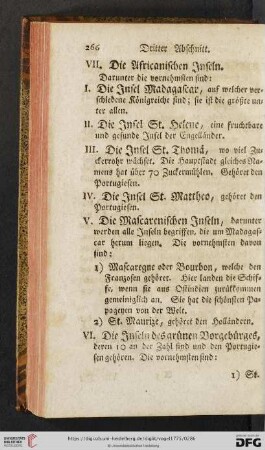 266 Dritter Abschnitt.
VII. Die Africanischen Inseln.
Darunter die vornehmsten sind:
I. Die Insel Madagascar, auf welcher ver-
schiedene Königreiche sind; sie ist die größte un-
ter allen.
II. Die Insel St. Helene, eine fruchtbare
und gesunde Insel der Engelländer.
III. Die Insel St. Thomä, wo viel Zu-
ckerrohr wächset. Die Hauptstadt gleiches Na-
mens hat über 70 Zuckermühlen. Gehöret den
Portugiesen.
IV. Die Insel St. Mattheo, gehöret den
Portugiesen.
V. Die Mascarenischen Inseln, darunter
werden alle Inseln begriffen, die um Madagas-
car herum liegen. Die vornehmsten davon
sind:
1) Mascaregne oder Bourbon, welche den
Franzosen gehöret. Hier landen die Schif-
fe, wenn sie aus Ostindien zurückkommen
gemeiniglich an. Sie hat die schönsten Pa-
pageyen von der Welt.
2) St. Maurize, gehöret den Holländern.
VI. Die Inseln des grünen Vorgebürges,
deren 10 an der Zahl sind und den Portugie-
sen gehören. Die vornehmsten sind:
1) St.
© Universitätsbibliothek Heidelberg
DFG